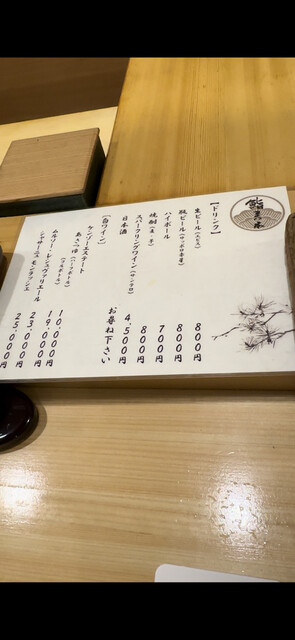 鮨
【ドリンク】
生ビール(エビス) 800円
瓶ビール(サッポロ赤星) 800円
ハイボール 700円
焼酎(麦・芋) 800円
スパークリングワイン(サンテロ) 4,500円
日本酒 お尋ね下さい
【白ワイン】
ケンゾーエステート
あさつゆ(ハーフボトル) 10,000円
(フルボトル) 19,000円
ムルソー・レ・シュヴァリエール 23,000円
シャサーニュ モンラッシェ 25,000円